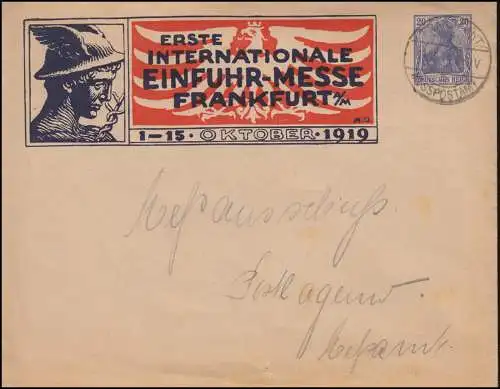 ERSTE
INTERNATIONALE
EINFUHR-MESSE
FRANKFURT A/M
1-15. OKTOBER. 1919
20 20
DEUTSCHES REICH
Meßausschuß.
Postlagernd.
Meßamt.